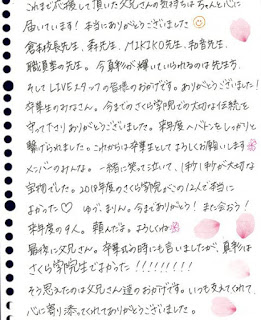 これまで応援して頂いた父兄さんの気持ちはちゃんと心に
届いています！本当にありがとうございました
倉本校長先生、森先生、MIKIKO先生、
職員室の先生。今真彩が輝いていられるのは先生方、
そしてLIVEスタッフの皆様のおかげです。ありがとうございました！
卒業生のみなさん。今までのさくら学院での大切な伝統を
守って下さりありがとうございました。来年度へバトンをしっかりと
繋げられました。これからは卒業生としてよろしくお願いします
メンバーのみんな。一緒に笑って泣いて、1秒1秒が大切な
宝物でした。2018年度のさくら学院がこの12人で本当に
よかった♡ ゆづ、まりん。今までありがとう！また会おう！
来年度の9人。頼んだよ。よろしくね
最後に父兄さん。卒業式の時にも言いましたが、真彩は
さくら学院生でよかった！！！！！！！！！
そう思えたのは父兄さん達のおかげです。いつも支えてくれて、
心に寄り添ってくれてありがとうございました。